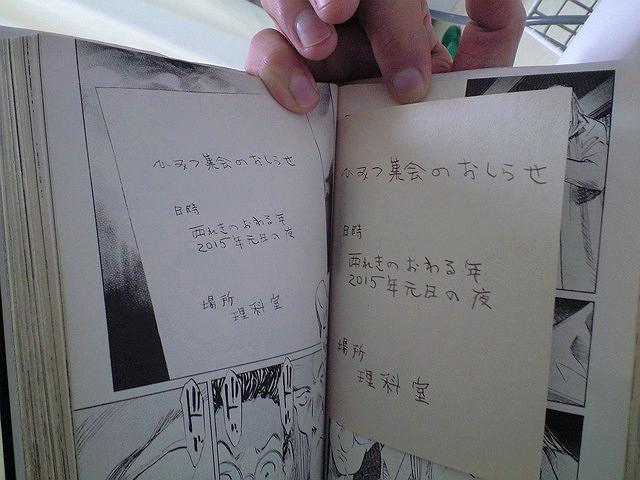 ひみつ集会のおしらせ
日時
西れきのおわる年
2015年元日の夜
場所
理科室
ひみつ集会のおしらせ
日時
西れきのおわる年
2015年元日の夜
場所
理科室